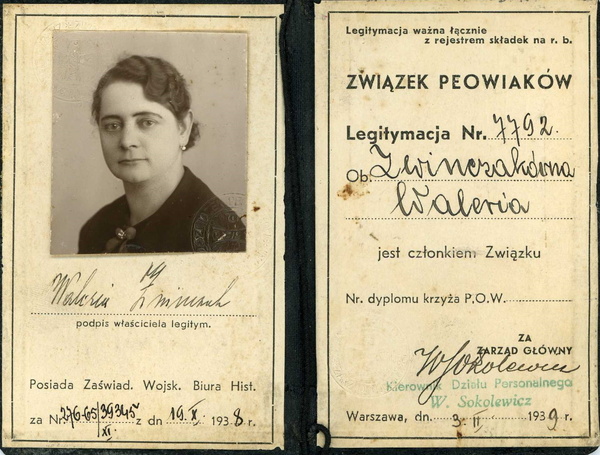 Waleria Zwinczak
podpis właściciela legitym.
Posiada Zaświad. Wojsk. Biura Hist.
za Nr. 276-65/39345/XI. z dn 19. X. 1938 r.
Legitymacja ważna łącznie
z rejestrem składek na r. b.
ZWIĄZEK PEOWIAKÓW
Legitymacja Nr. 7792.
Ob. Zwinczakówna
Waleria
jest członkiem Związku
Nr. dyplomu krzyża P.O.W.
ZA
ZARZĄD GŁÓWNY
W Sokolewicz
Kierownik Działu Personalnego
W. Sokolewicz
Warszawa, dn. 3. II. 1939 r.